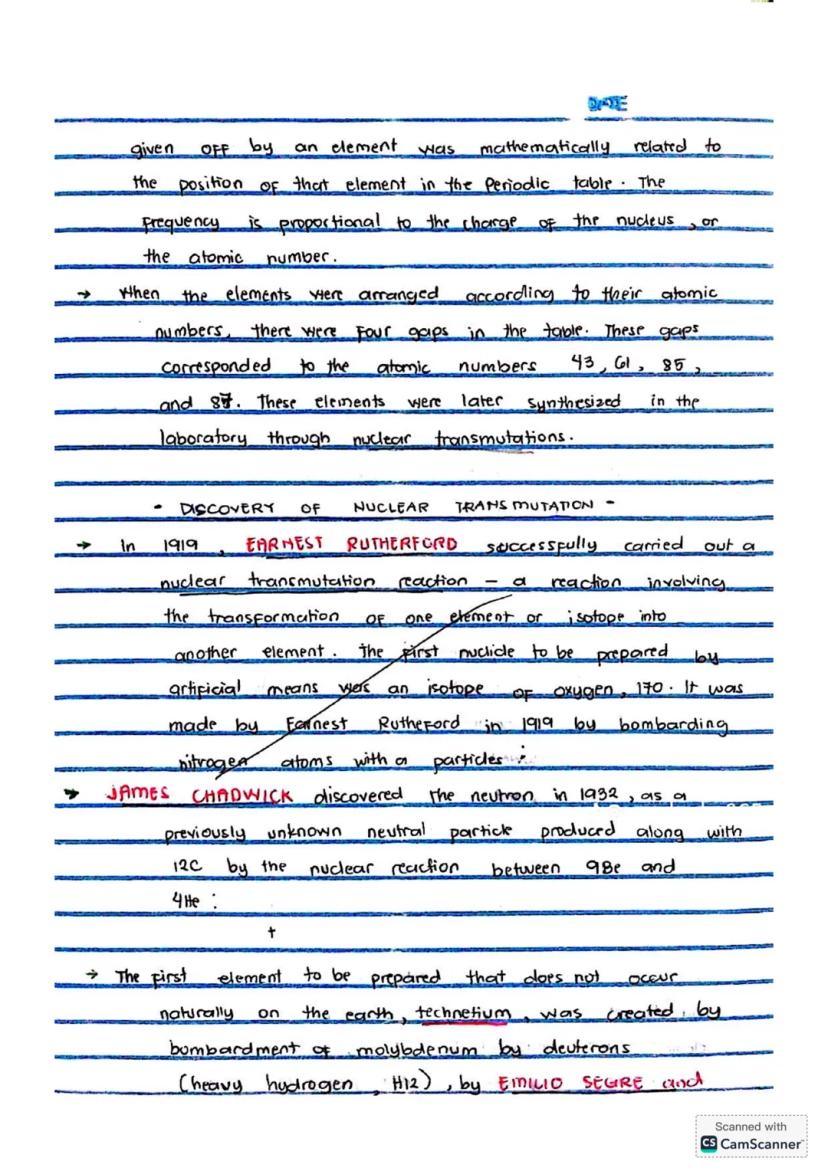 DATE
given off by an element was mathematically related to
the position of that element in the Periodic table. The
frequency is proportional to the charge of the nucleus, or
the atomic number.
→ When the elements were arranged according to their atomic
numbers, there were four gaps in the table. These gaps
corresponded to the atomic numbers 43, 61, 85,
and 87. These elements were later synthesized in the
laboratory through nuclear transmutations.
- DISCOVERY OF NUCLEAR TRANSMUTATION -
→ In 1919, EARNEST RUTHERFORD successfully carried out a
nuclear transmutation reaction — a reaction involving
the transformation of one element or isotope into
another element. The first nuclide to be prepared by
artificial means was an isotope of oxygen, 17O. It was
made by Earnest Rutherford in 1919 by bombarding
nitrogen atoms with α particles :
→ JAMES CHADWICK discovered the neutron in 1932, as a
previously unknown neutral particle produced along with
12C by the nuclear reaction between 9Be and
4He :
+
→ The first element to be prepared that does not occur
naturally on the earth, technetium, was created by
bombardment of molybdenum by deuterons
(heavy hydrogen, H12), by EMILIO SEGRE and
Scanned with
CS CamScanner